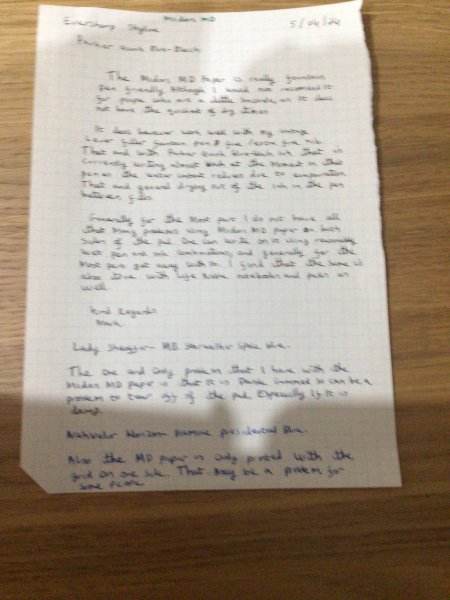 Eversharp Skyline Midori MD 5/04/24
Parker Quink Blue-Black
The Midori MD Paper is really fountain
pen friendly Although I would not recommend it
for people who are a little, as it does
not have the quickest of dry times.
It does however work well with my vintage
lever filler fountain pen & fine / extra fine nib.
That and with Parker Quink Blue-black ink that is
currently writing almost black at the moment in that
pen as the water content reduces due to evaporation
That and general drying out of the ink in the pen
between fills.
Generally for the most part I do not have all
that many problems using Midori MD paper on both
sides of the pad. One can write on it using reasonably
wet pen and ink combinations, and generally for the
most part get away with it. I find that the same is
also true with Life Noble notebooks and pads as
well.
Kind Regards
Mark.
Lady Sheaffer - MD. blue.
The one and only problem that I have with the
Midori MD paper is that it is gummed so can be a
problem to tear off of the pad. Especially if it is
damp.
Nahvalur Horizon - Diamine presidential blue.
Also the MD paper is only printed with the
grid on one side. That may be a problem for
some people.